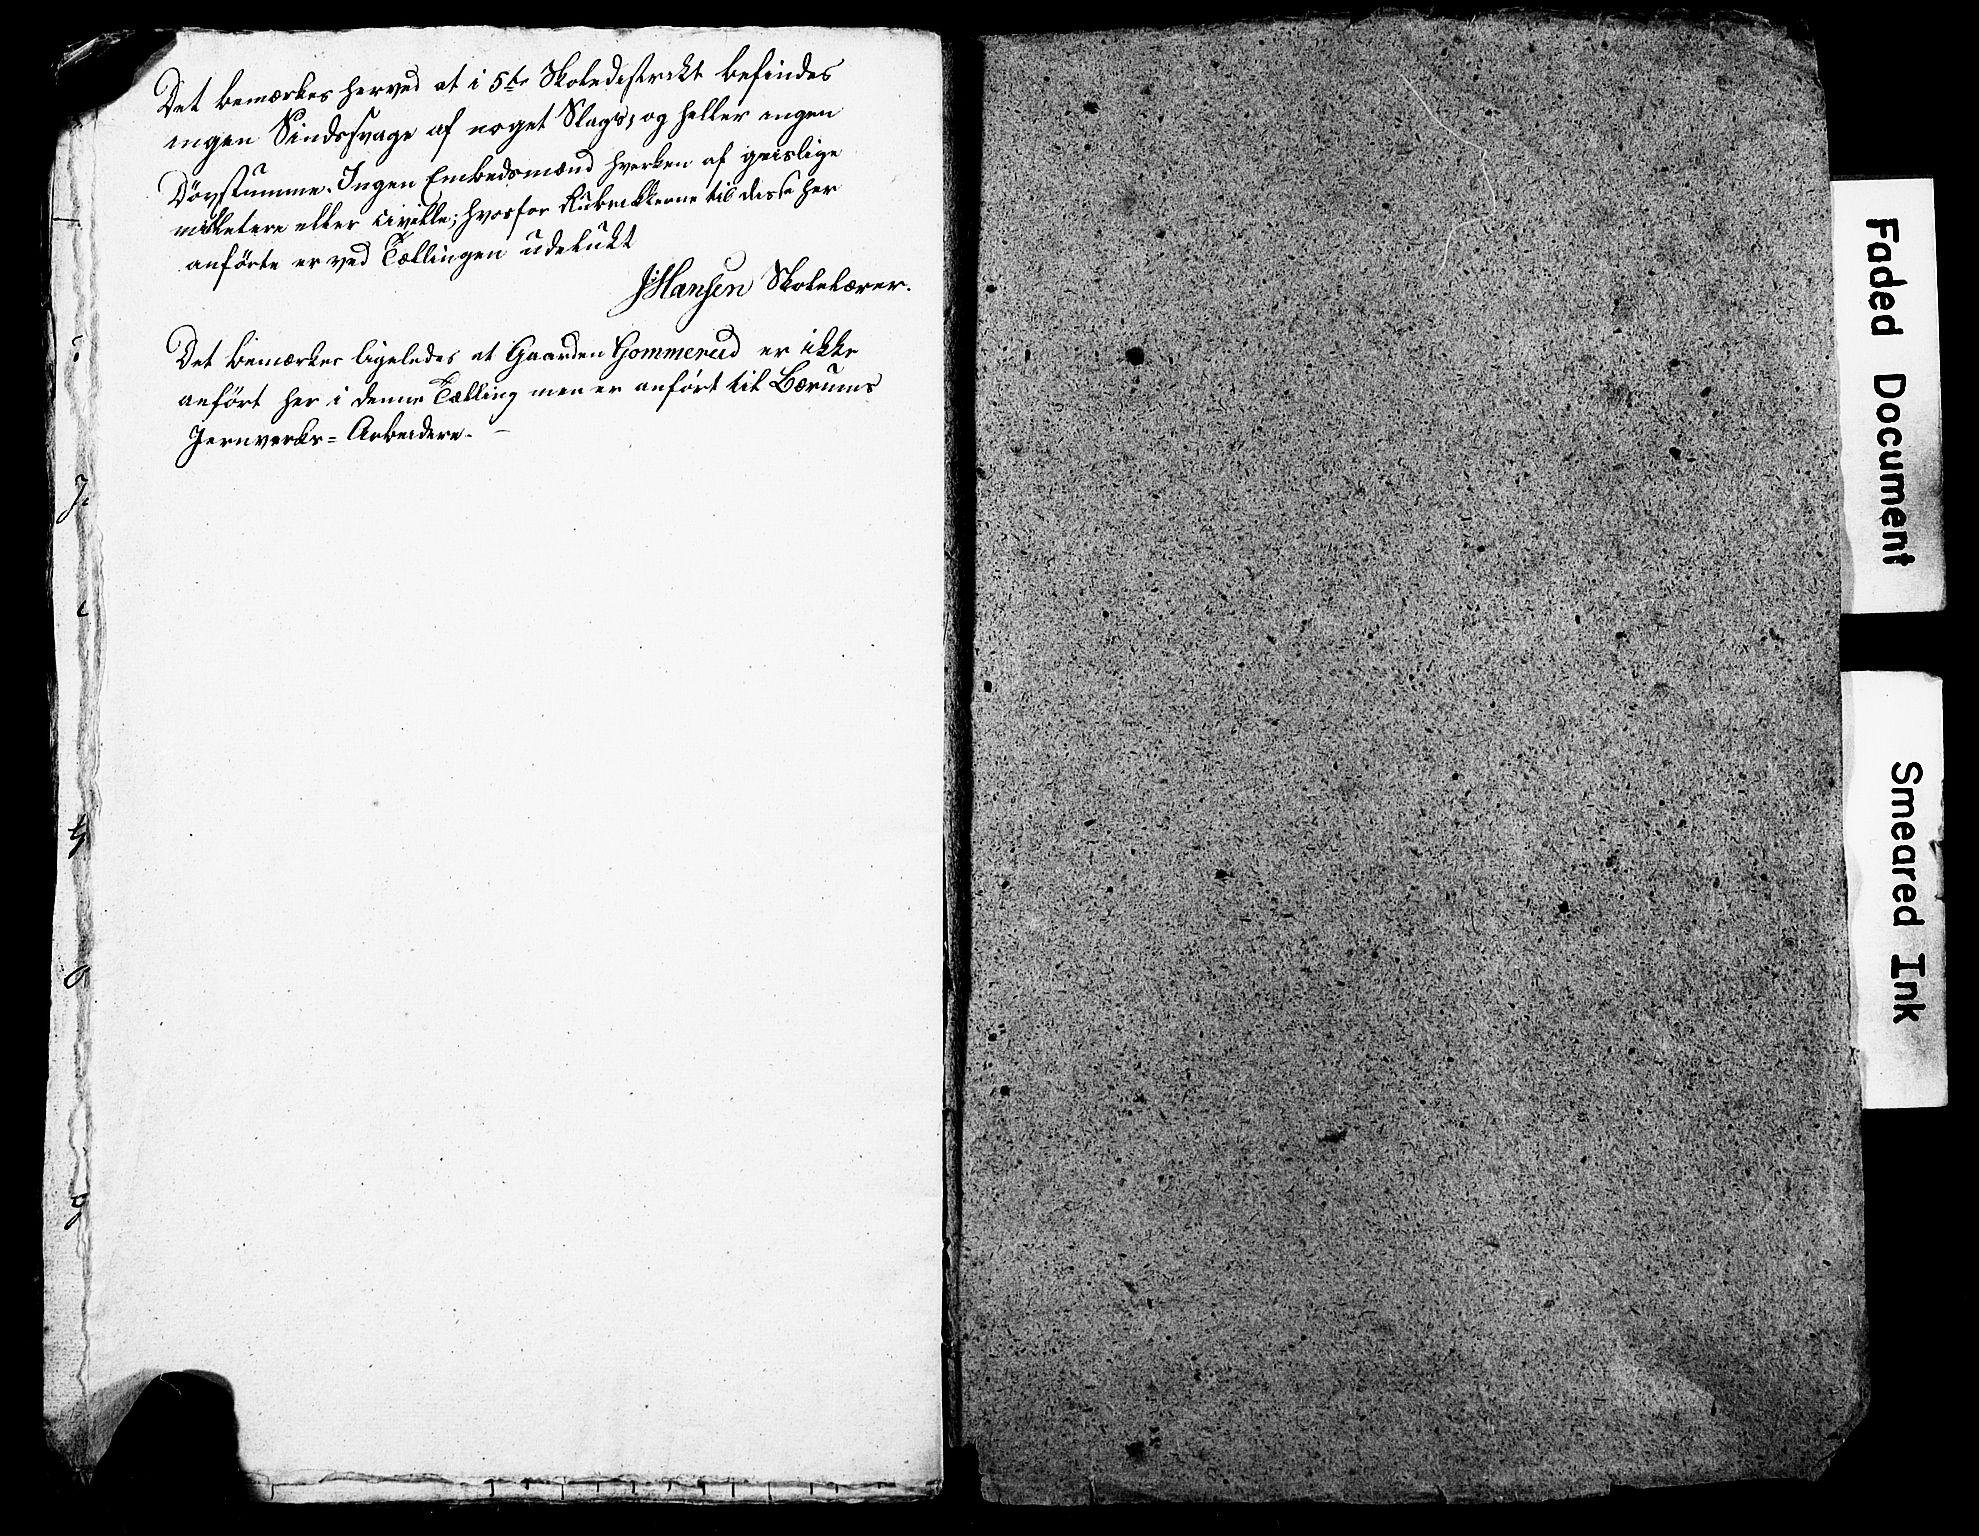 Det bemærkes herved at i 5te Skoledistrekt befindes
ingen Sindssvage af noget Slags; og heller ingen
Døvstumme. Ingen Embedsmænd hverken af geislige
militere eller civille; hvorfor Rubrikkerne til disse her
anförte er ved Tællingen udelukt
JHansen Skolelærer.
Det bemærkes ligeledes at Gaarden Gommerud er ikke
anført her i denne Tælling men er anført til Bærums
Jernverks= Arbeidere.
Faded Document
Smeared Ink